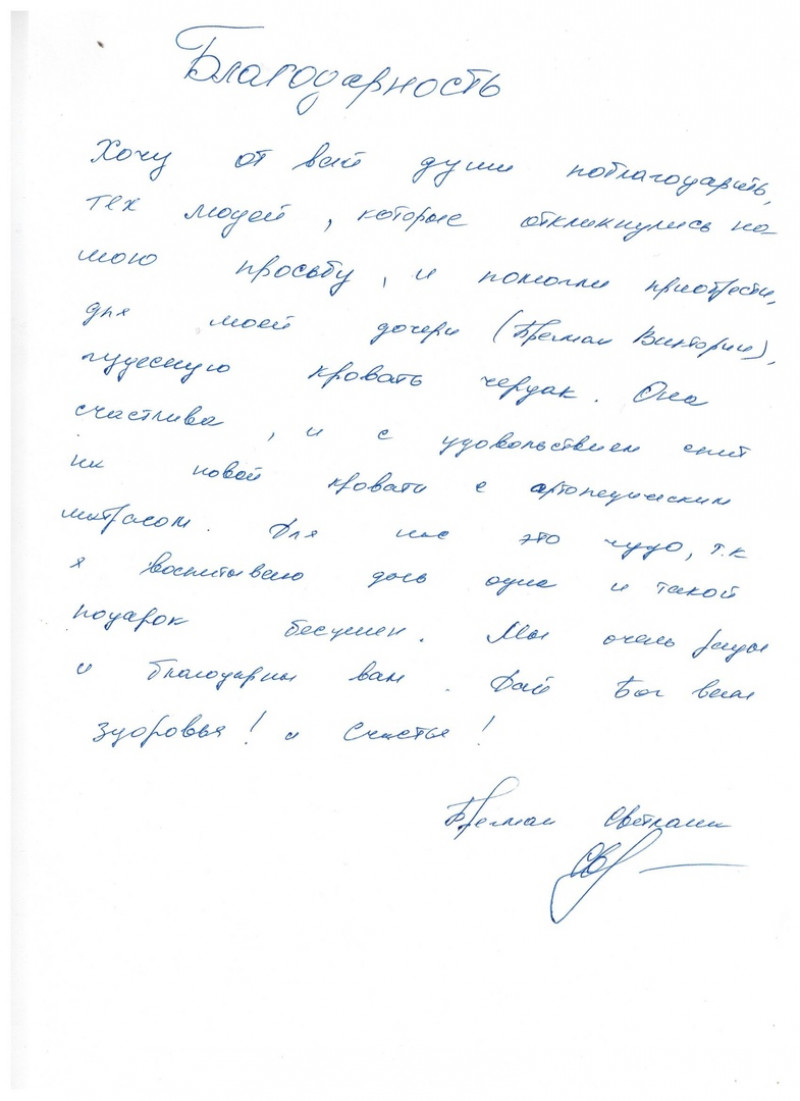 Благодарность
Хочу от всей души поблагодарить,
тех людей, которые откликнулись на
мою просьбу, и помогли приобрести,
для моей дочери (Брегман Виктории),
чудесную кровать чердак. Она
счастлива, и с удовольствием спит
на новой кровати с ортопедическим
матрасом. Для нас это чудо, т.к
я воспитываю дочь одна и такой
подарок бесценен. Мы очень рады
и благодарны вам. Дай Бог вам
здоровья! и Счастья!
Брегман Светлана